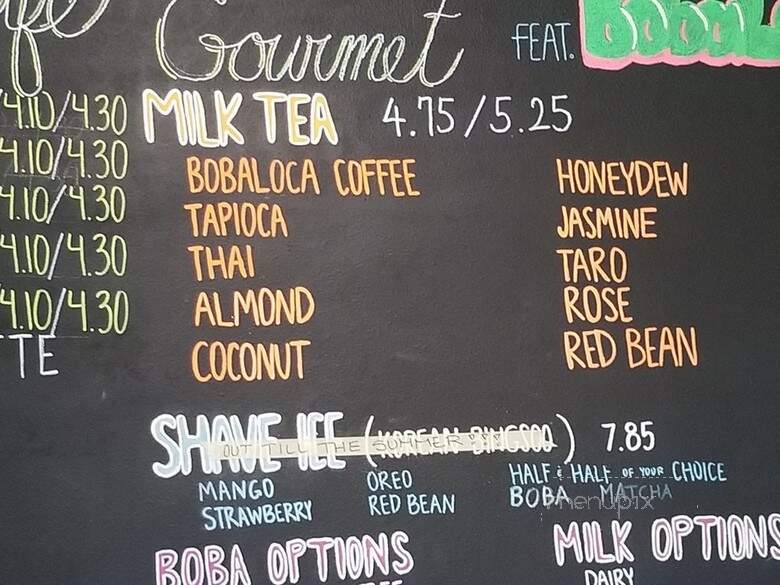 Gourmet FEAT.
4.10/4.30
4.10/4.30
4.10/4.30
4.10/4.30
4.10/4.30
TE
MILK TEA 4.75/5.25
BOBALOCA COFFEE
TAPIOCA
THAI
ALMOND
COCONUT
HONEYDEW
JASMINE
TARO
ROSE
RED BEAN
SHAVE ICE (KOREAN BINGSOO) 7.85
OUT TILL THE SUMMER!!!
MANGO
STRAWBERRY
OREO
RED BEAN
HALF & HALF OF YOUR CHOICE
BOBA MATCHA
menupix
BOBA OPTIONS
MILK OPTIONS
DAIRY